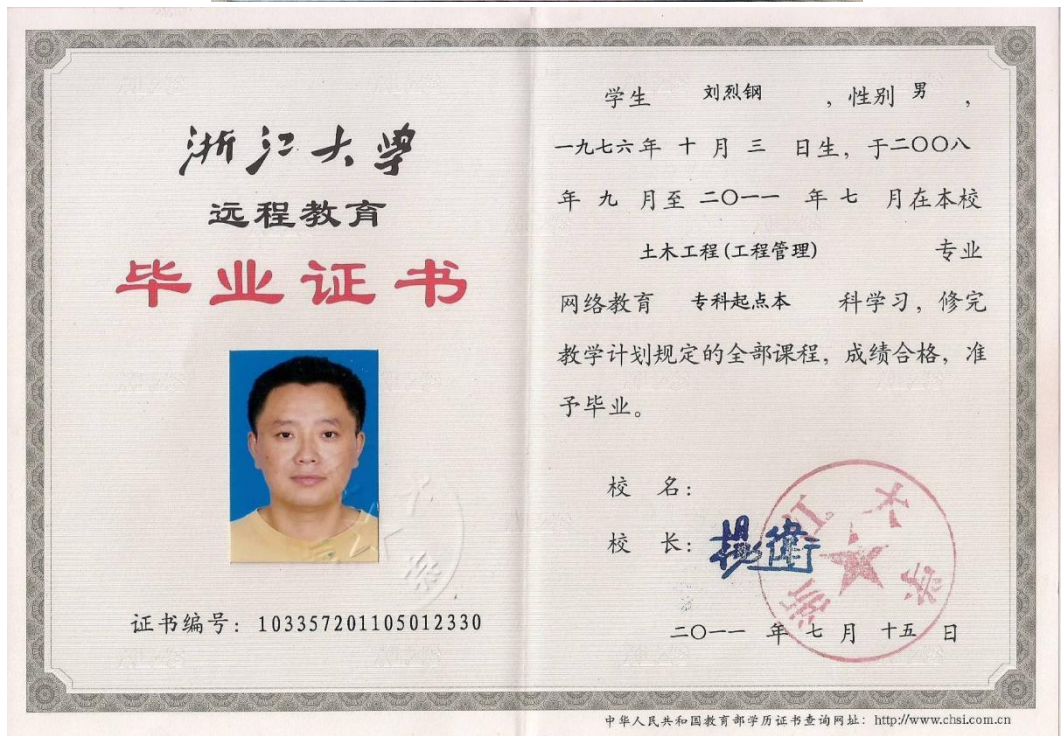 浙江大学
远程教育
毕业证书
证书编号：103357201105012330
学生 刘烈钢 ，性别 男 ，
一九七六年 十 月 三 日生，于二〇〇八
年 九 月至 二〇一一 年 七 月在本校
土木工程(工程管理) 专业
网络教育 专科起点本 科学习，修完
教学计划规定的全部课程，成绩合格，准
予毕业。
校 名：
校 长：杨卫
浙江大学
二〇一一 年 七 月 十五 日
中华人民共和国教育部学历证书查询网址：http://www.chsi.com.cn